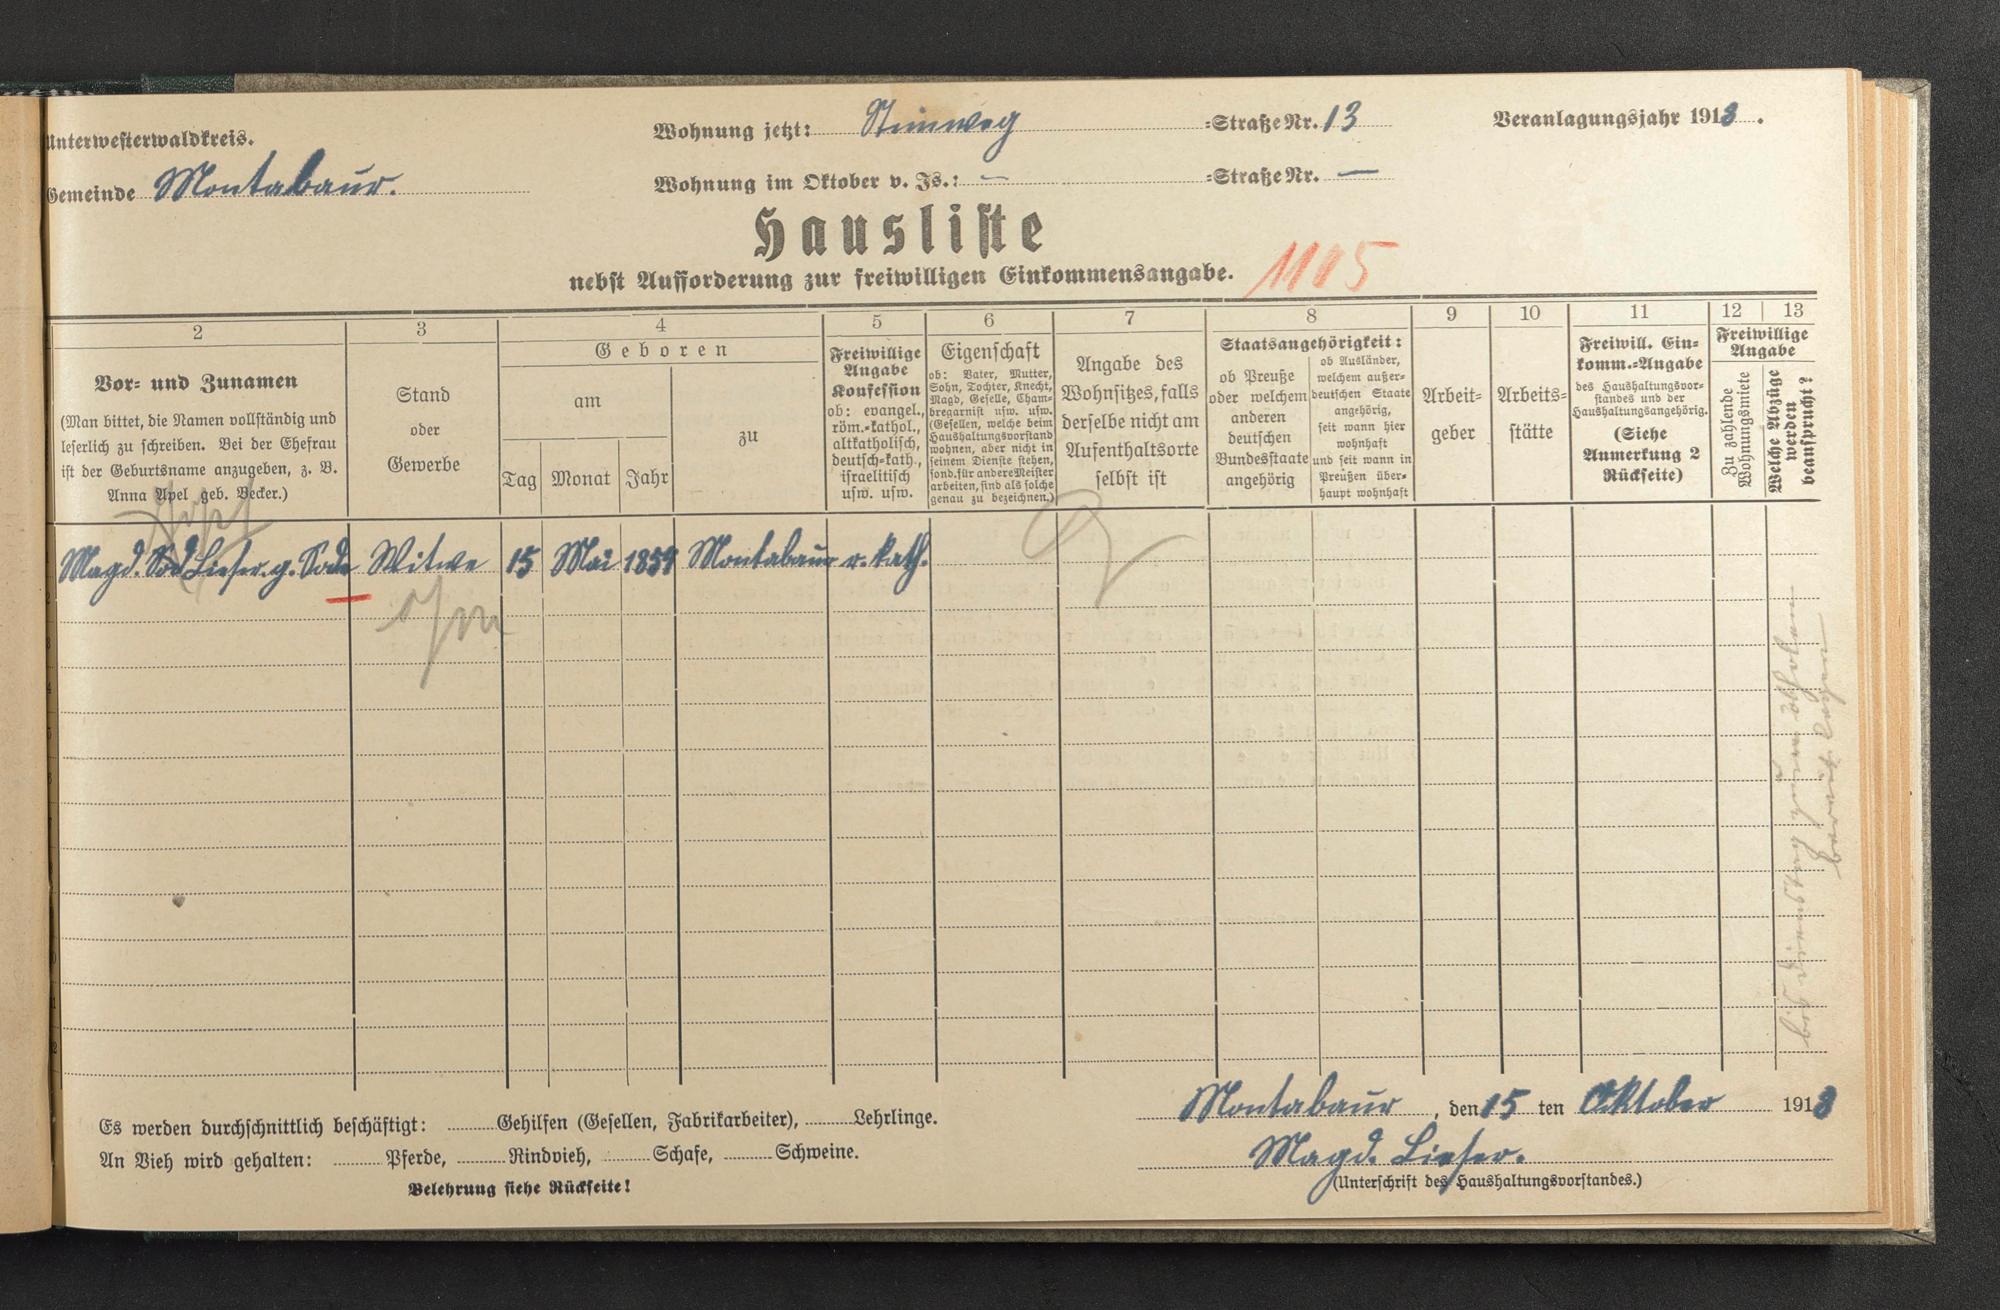 Unterwesterwaldkreis.
Gemeinde Montabaur.
Wohnung jetzt: Steinweg =Straße Nr. 13
Wohnung im Oktober v. Js.: — =Straße Nr. —
Veranlagungsjahr 1913.
Hausliste
nebst Aufforderung zur freiwilligen Einkommensangabe.
1105
2
Vor= und Zunamen
(Man bittet, die Namen vollständig und
leserlich zu schreiben. Bei der Ehefrau
ist der Geburtsname anzugeben, z. B.
Anna Apel geb. Becker.)
3
Stand
oder
Gewerbe
4
Geboren
am
Tag Monat Jahr
zu
5
Freiwillige
Angabe
Konfession
ob: evangel.,
röm.=kathol.,
altkatholisch,
deutsch=kath.,
israelitisch
usw. usw.
6
Eigenschaft
ob: Vater, Mutter,
Sohn, Tochter, Knecht,
Magd, Geselle, Cham=
bregarnist usw. usw.
(Gesellen, welche beim
Haushaltungsvorstand
wohnen, aber nicht in
seinem Dienste stehen,
sond. für andere Meister
arbeiten, sind als solche
genau zu bezeichnen.)
7
Angabe des
Wohnsitzes, falls
derselbe nicht am
Aufenthaltsorte
selbst ist
8
Staatsangehörigkeit:
ob Preuße
oder welchem
anderen
deutschen
Bundesstaate
angehörig
ob Ausländer,
welchem außer=
deutschen Staate
angehörig,
seit wann hier
wohnhaft
und seit wann in
Preußen über=
haupt wohnhaft
9
Arbeit=
geber
10
Arbeits=
stätte
11
Freiwill. Ein=
komm.=Angabe
des Haushaltungsvor=
standes und der
Haushaltungsangehörig.
(Siehe
Anmerkung 2
Rückseite)
12 | 13
Freiwillige
Angabe
Zu zahlende
Wohnungsmiete
Welche Abzüge
werden
beansprucht?
Magd. Lieser. g. Sode Witwe 15 Mai 1854 Montabaur r. kath.
Es werden durchschnittlich beschäftigt: Gehilfen (Gesellen, Fabrikarbeiter), Lehrlinge.
An Vieh wird gehalten: Pferde, Rindvieh, Schafe, Schweine.
Belehrung siehe Rückseite!
Montabaur, den 15 ten Oktober 1913
Magd. Lieser.
(Unterschrift des Haushaltungsvorstandes.)